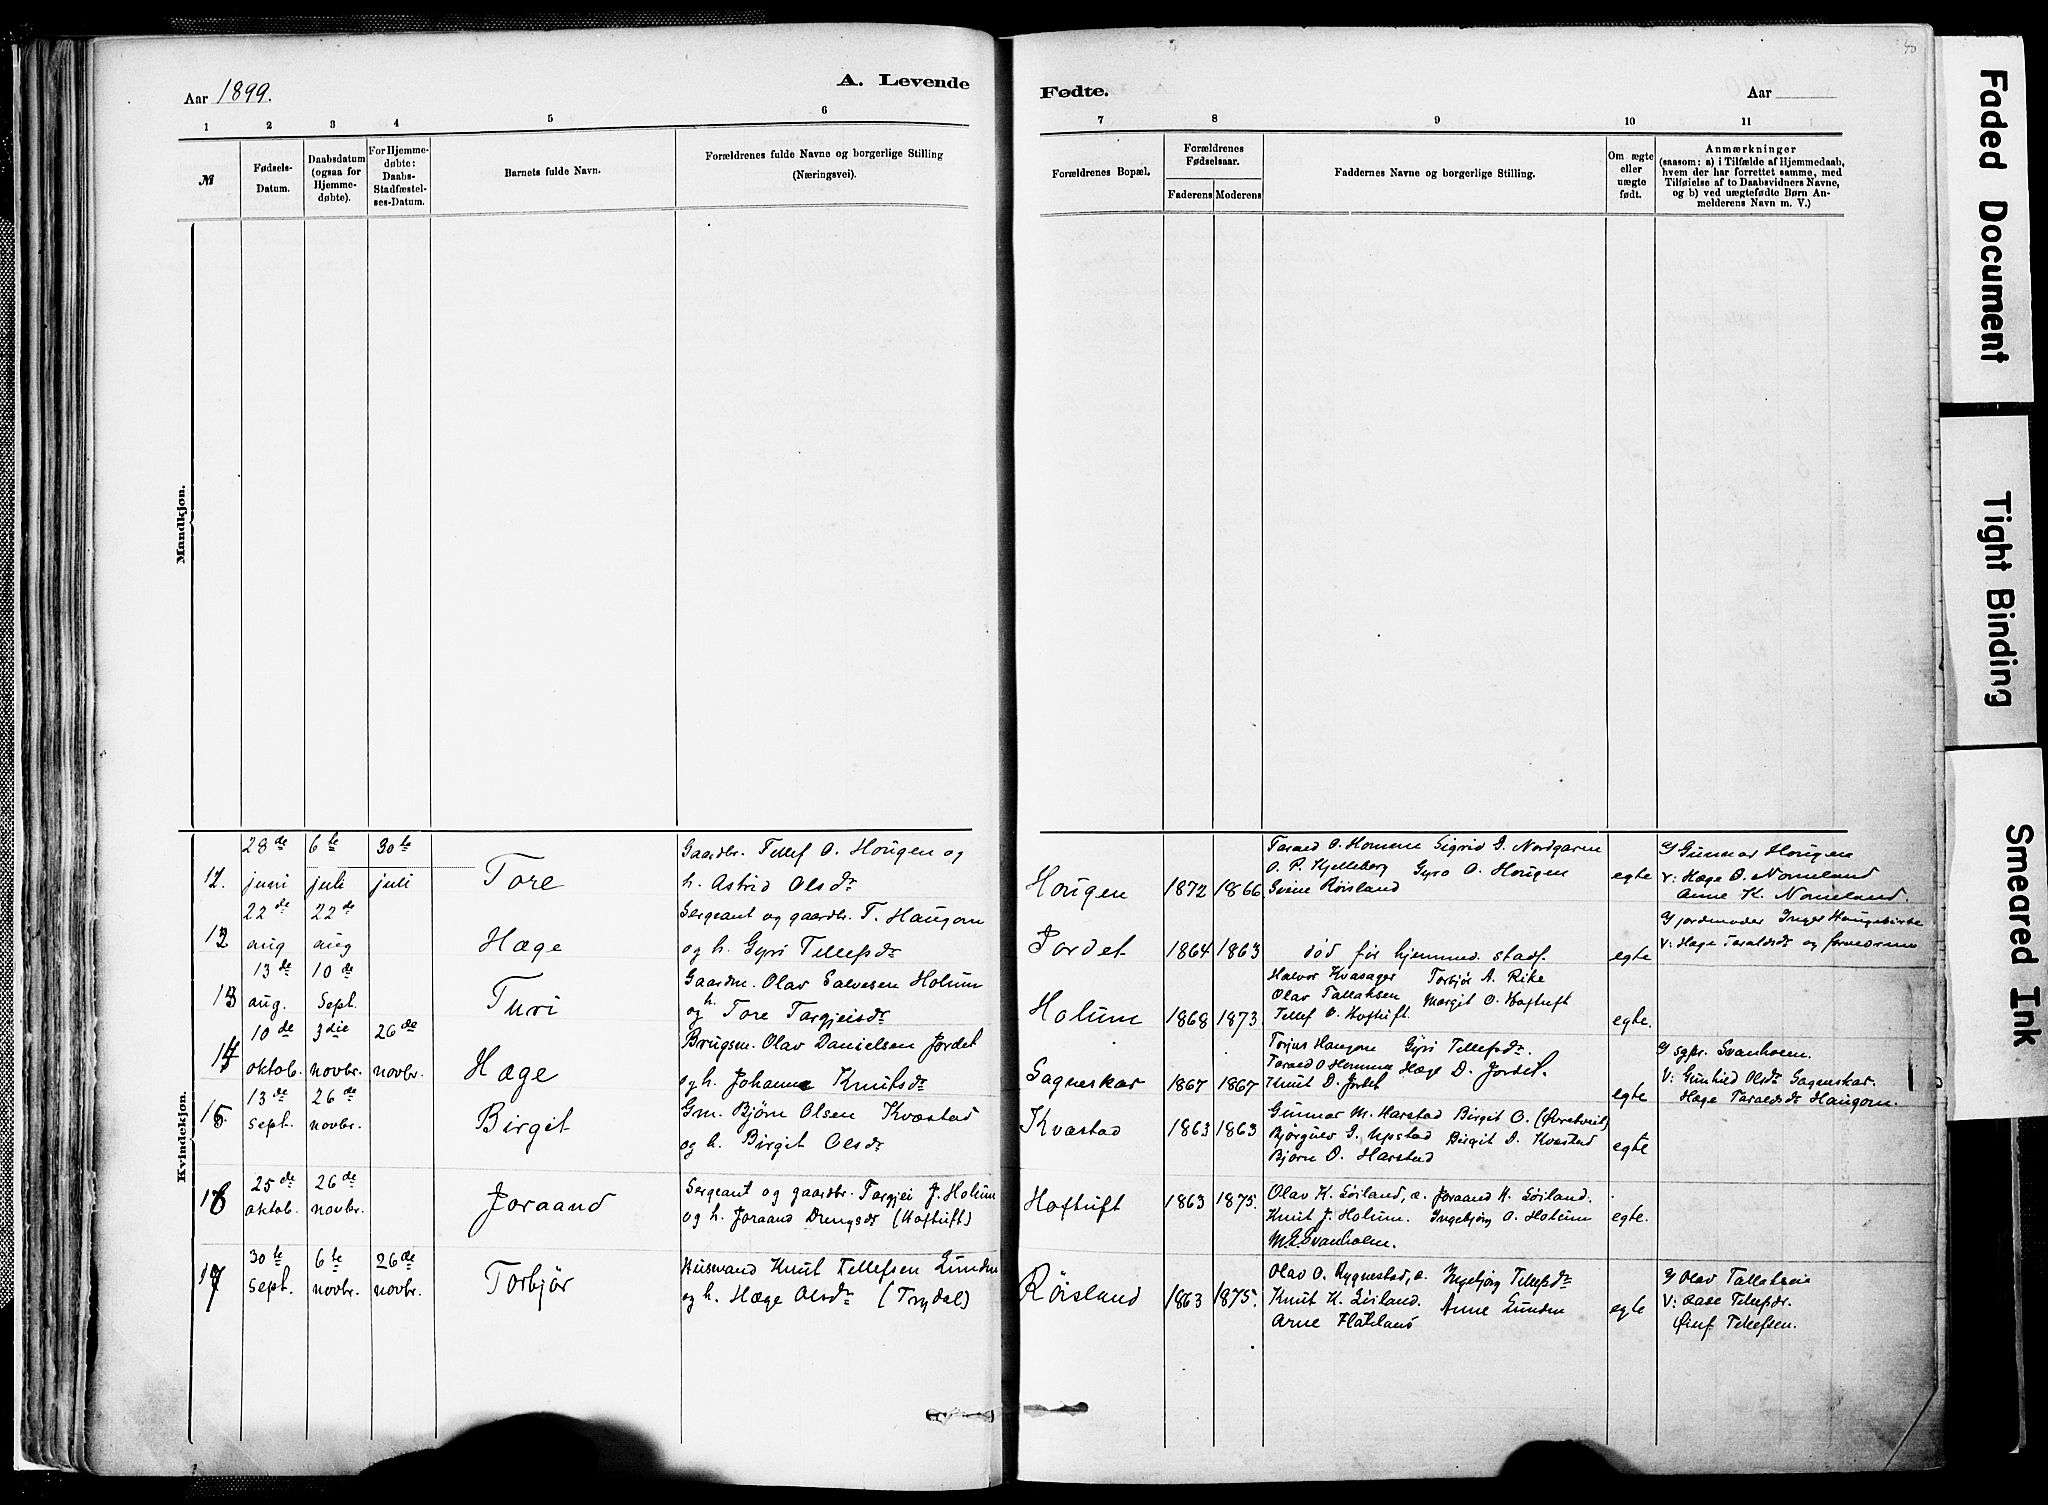 Aar 1899.
A. Levende
Fødte.
Aar
40
1 2 3 4 5 6 7 8 9 10 11
№
Fødsels-Datum.
Daabsdatum (ogsaa for Hjemme-døbte).
For Hjemme-døbte: Daabs-Stadfæstel-ses-Datum.
Barnets fulde Navn.
Forældrenes fulde Navne og borgerlige Stilling (Næringsvei).
Forældrenes Bopæl.
Forældrenes Fødselsaar.
Faderens Moderens
Faddernes Navne og borgerlige Stilling.
Om ægte eller uægte født.
Anmærkninger
(saasom: a) i Tilfælde af Hjemmedaab,
hvem der har forrettet samme, med
Tilføielse af to Daabsvidners Navne,
og b) ved uægtefødte Børn An-
melderens Navn m. V.)
Mandkjøn.
Kvindekjøn.
12. 28de juni 6te juli 30te juli
Tore
Gaardbr. Tellef O. Hougen og
h. Astrid Olsdr
Hougen 1872 1866
Tarald O. Homme Sigrid G. Nordgarne
O. P. Kjelleberg Gyro O. Hougen
Svein Røisland
egte
Gunnar Hougen
V: Hæge O. Nomeland
Anne K. Nomeland.
13 22de aug 22de aug
Hæge
Sergeant og gaardbr. T. Haugom
og h. Gyri Tellefsdr
Jordet 1864 1863
død før hjemmed. stadf.
egte
Gjordmoder Inger Haugebirke
V: Hæge Taraldsdr og
13 13de aug. 10de Sept.
Turi
Gaardm. Olav Salvesen Holum
og h. Tore Targjeisdr
Holum 1868 1873.
Halvor Kvasager Torbjør A. Rike
Olav Tallaksen Margit O. Hoftuft
Tellef O. Hoftuft.
egte.
14 10de oktob. 3die novbr. 26de novbr.
Hæge
Brugsm. Olav Danielsen Jordet
og h. Johanne Knutsdr
Sagneskar 1867 1867
Torjus Haugom Gyri Tellefsdr.
Tarald O Homme Hæge D. Jordet.
Knut D. Jordet
egte
sgpr. Svanholm.
V: Gunhild Olsdr Sagneskar.
Hæge Taraldsdr Haugom.
15 13de sept. 26de novbr.
Birgit
Gm. Bjørn Olsen Kvæstad
og h. Birgit Olsdr
Kvæstad 1863 1863
Gunnar M. Harstad Birgit O. (Øvretveit)
Bjørgulv G. Upstad Birgit D. Kvæstad
Bjørn O. Harstad
egte
16 25de oktob. 26de novbr.
Joraand
Sergeant og gaardbr. Targjei J. Holum
og h. Joraand Drengsdr (Hoftuft)
Hoftuft 1863 1875.
Olav K. Løiland, a. Joraand K. Løiland.
Knut J. Holum. Ingebjørg O. Holum
M. E. Svanholm.
egte.
17 30te sept. 6te novbr. 26de novbr.
Torbjør
Husmand Knut Tellefsen Lunden
og h. Hæge Olsdr (Trydal)
Røisland 1863 1875.
Olav O. Rygnestad, a. Ingebjørg Tellefsdr
Knut K. Løiland. Anne Lunden
Arne Flateland
egte
Olav Tallaksen
V: Aase Tellefsdr.
Tellefsen.
Faded Document
Tight Binding
Smeared Ink